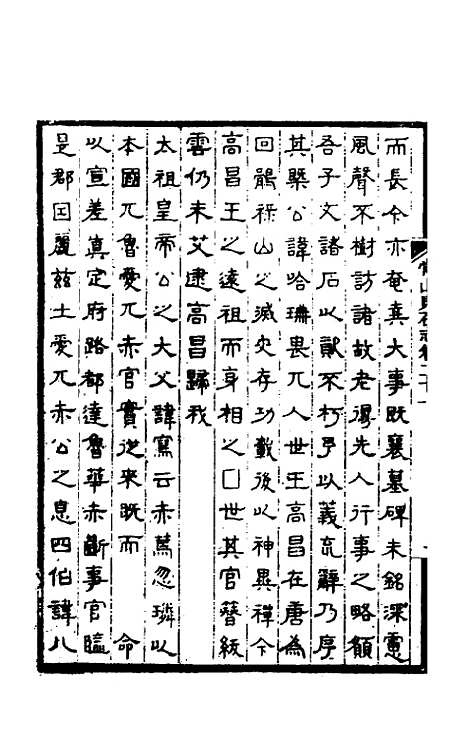 而長今亦奄真大事旣襄墓碑未銘深䆁
風聲不樹訪諸故老得先人行事之畧願
吾子文諸石以猷不朽予以義克辭乃序
其槩公諱哈珊畏兀人世王高昌在唐為
回鶻祿山之滅史存功載後以神異禪今
高昌王之遠祖而身相之□世其官簪紱
雲仍未艾逮高昌歸我
太祖皇帝公之大父諱寫云赤篤忽璘以
本國兀魯愛兀赤官實從來旣而 命
以宣差真定府路都達魯華赤斷事官臨
是郡因麗茲土愛兀赤公之息四伯諱八
常山貞石志卷二十一